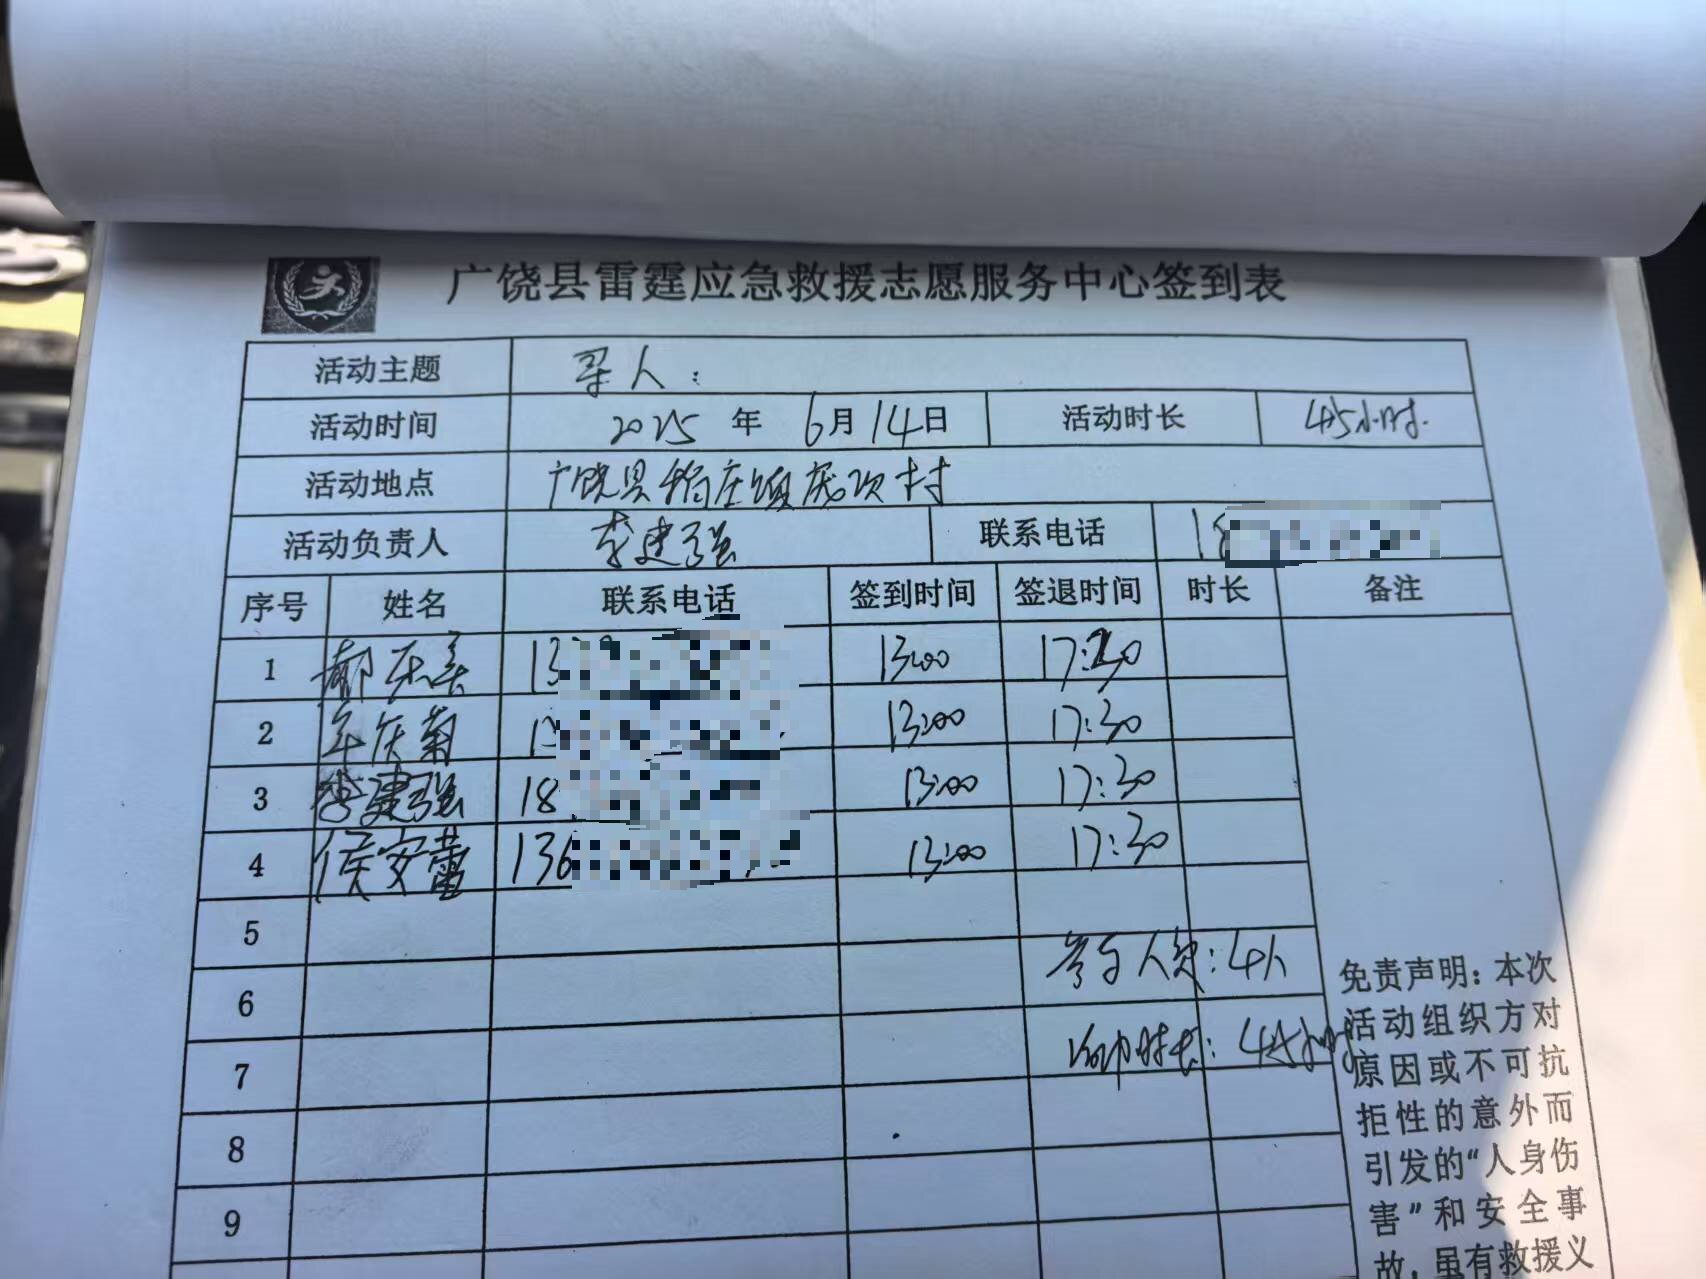 广饶县雷霆应急救援志愿服务中心签到表
活动主题 寻人：
活动时间 2025年6月14日 活动时长 4.5小时.
活动地点 广饶县稻庄镇庞项村
活动负责人 李建强 联系电话 1
序号 姓名 联系电话 签到时间 签退时间 时长 备注
1 郝 13 13:00 17:30
2 年庆菊 1 13:00 17:30
3 李建强 18 13:00 17:30
4 侯安蕾 136 13:00 17:30
5
参与人员：4人
6
时长：4.5小时
7
8
9
免责声明：本次
活动组织方对
原因或不可抗
拒性的意外而
引发的“人身伤
害”和安全事
故，虽有救援义